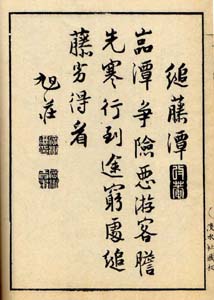 縋藤潭
嵓潭爭險惡游客膽
先寒行到途窮處縋
藤方得看
旭莊